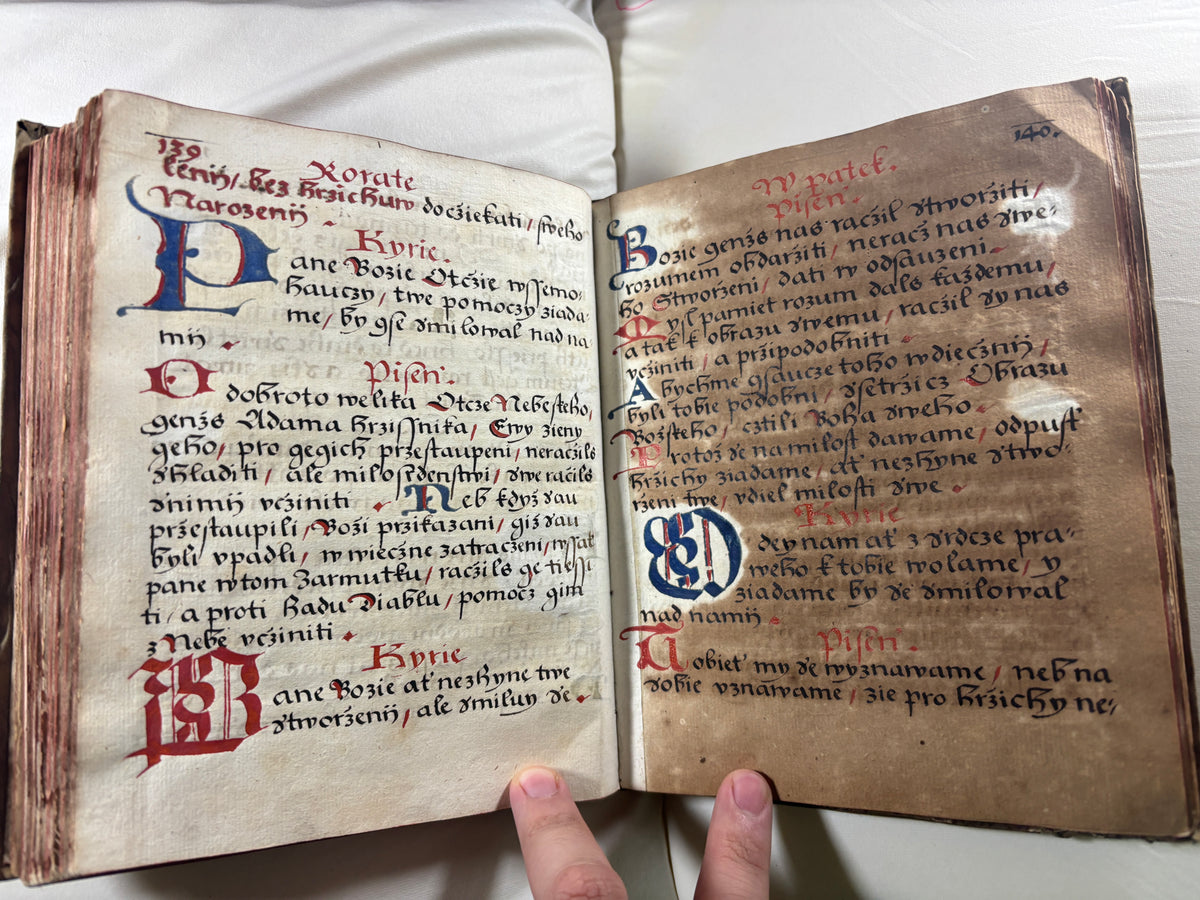 139
Rorate
ſenij/ bez hrzichuw docziekati/ ſweho
Narozenij.
Kyrie.
Pane Bozie Otczie wſſemo-
hauczy, twe pomoczy ziada-
me, by gſe ſmilowal nad na-
mij.
Piſen.
O dobroto welika Otcze Nebeſkeho,
genžs Adama hrziſſnika, Ewy zieny
geho, pro gegich przeſtaupeni, neraczils
ſhladiti, ale miloſrdenſtwi, ſwe raczils
ſnimij vcziniti. Neb když ſau
przeſtaupili, Boži przikazani, giž ſau
byli vpadli, w wieczne zatraczeni, wſſak
pane w tom Zarmutku, raczils ge tieſſi
ti, a proti Hadu Diablu, pomocz gim
z Nebe vcziniti.
Kyrie
Pane Bozie ať nezhyne twe
ſtworženij, ale ſmiluy ſe.
140.
W patek.
Piſen.
Bozie genžs nas raczil ſtworziti,
rozumem obdarziti, neracž nas ſwe-
ho Stworzeni, dati w odſauzeni.
Myſl pamieť rozum dals každemu,
a tak k obrazu ſwemu, raczil ſy nas
vcziniti, a przipodobniti.
Abychme gſauce toho wdiecznij,
byli tobie podobni, ſſetržicz Obrazu
Božſkeho, cztili Boha ſweho.
Protož ſe na miloſt dawame, odpuſť
hrzichy ziadame, ať nezhyne ſtwo-
rzeni twe, vdiel miloſti ſwe.
Kyrie
Odey nam ať z ſrdcze pra-
weho k tobie wolame, y
ziadame by ſe ſmilowal
nad namij.
Piſen.
Tobieť my ſe wyznawame, neb na
ſobie vznawame, zie pro hrzichy ne-